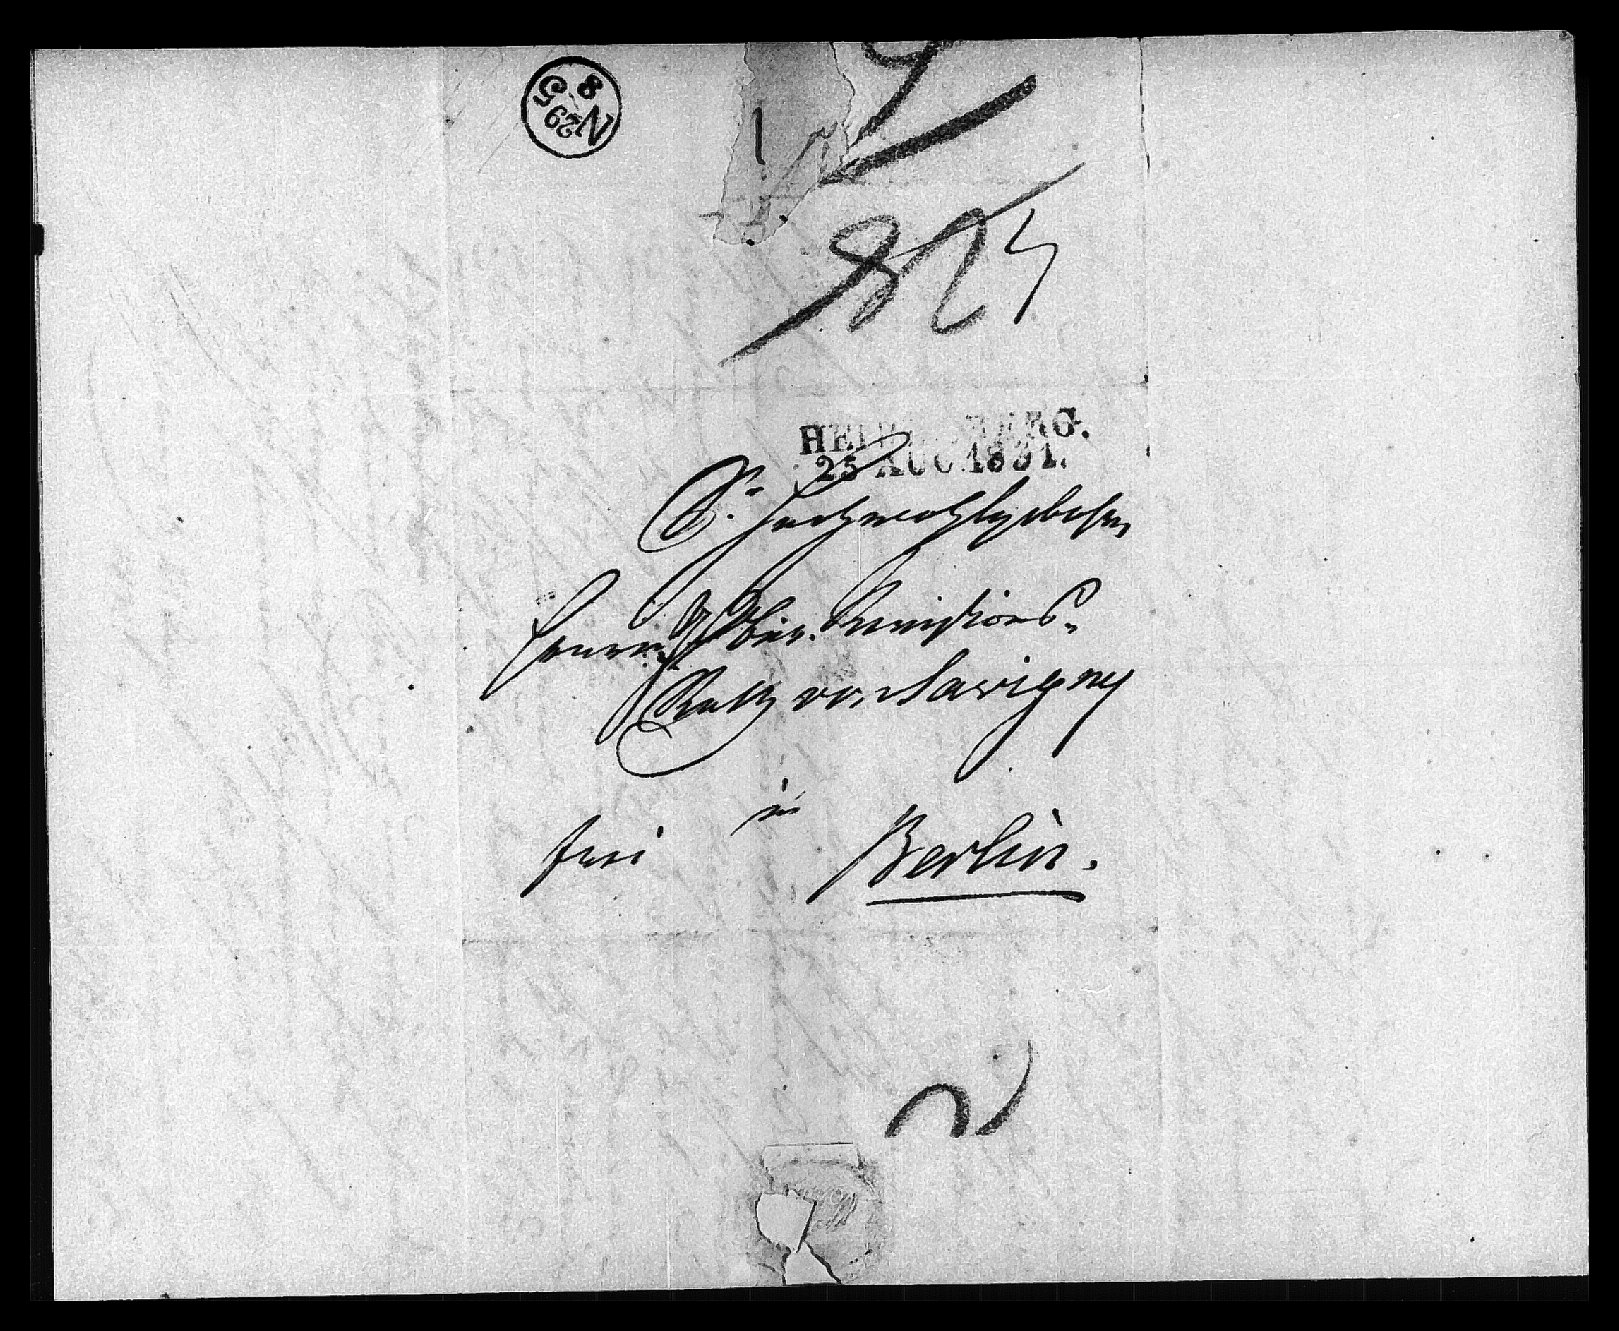 N
29
8
HEIDELBERG.
25 AUG 1831.
Sr. Hochwohlgeboren
Herrn Geh. Ober. Revisions-
Rath von Savigny
in
frei Berlin.